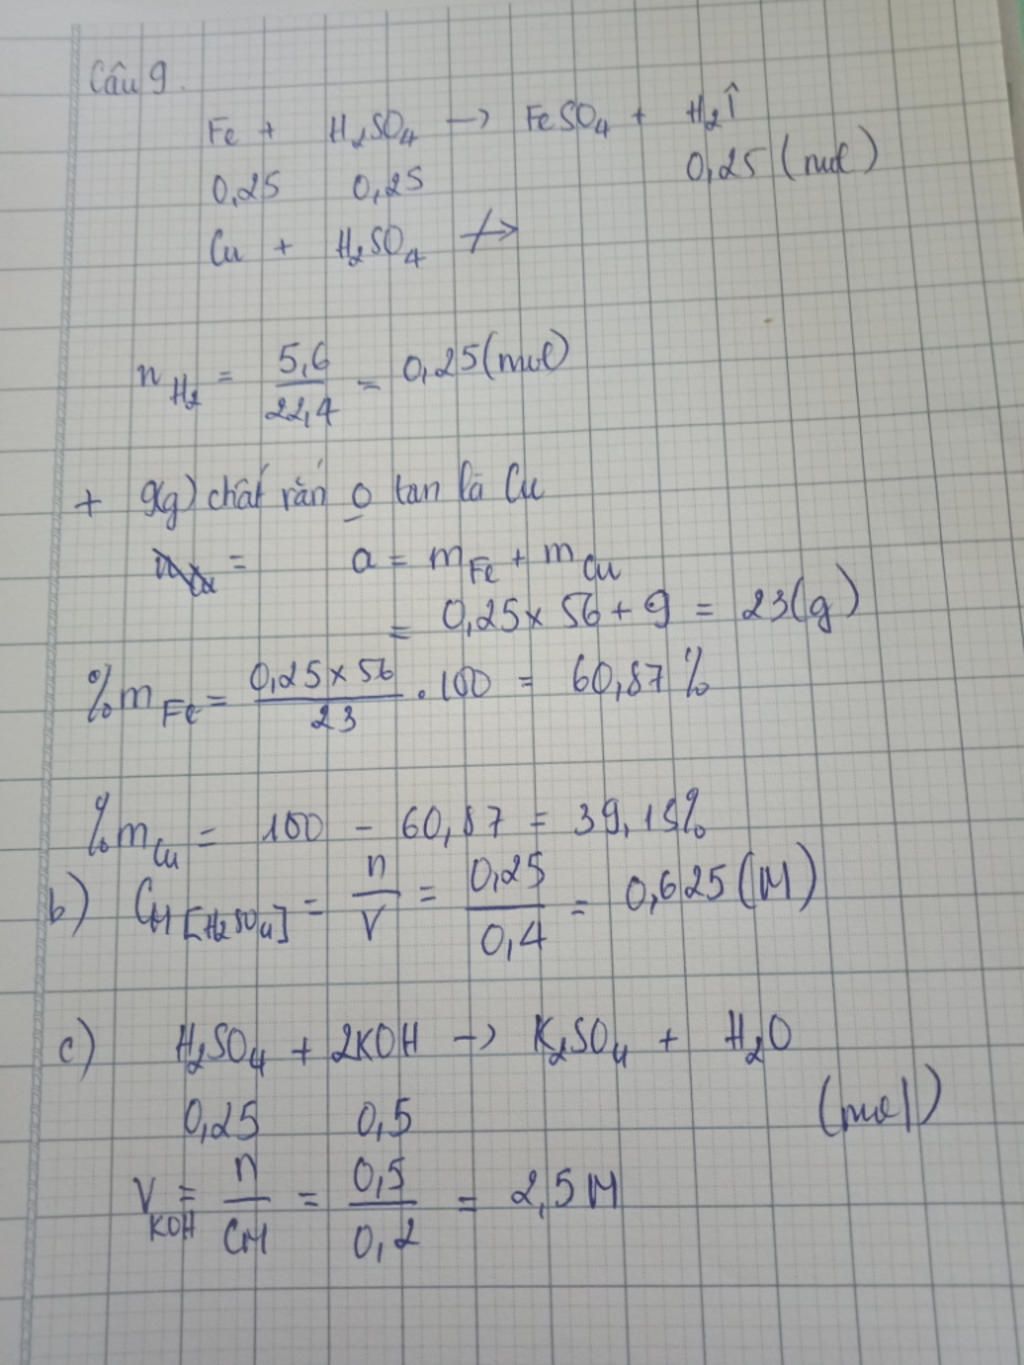 Câu 9.
Fe + H₂SO₄ → FeSO₄ + H₂↑
0,25 0,25 0,25 (mol)
Cu + H₂SO₄ ↛
n_H₂ = 5,6/22,4 = 0,25 (mol)
+ 9(g) chất rắn o tan là Cu
= a = m_Fe + m_Cu
= 0,25 × 56 + 9 = 23(g)
%m_Fe = (0,25 × 56)/23 . 100 = 60,87 %
%m_Cu = 100 - 60,87 = 39,13%
b) C_M [H₂SO₄] = n/V = 0,25/0,4 = 0,625 (M)
c) H₂SO₄ + 2KOH → K₂SO₄ + H₂O
0,25 0,5 (mol)
V_KOH = n/C_M = 0,5/0,2 = 2,5 M